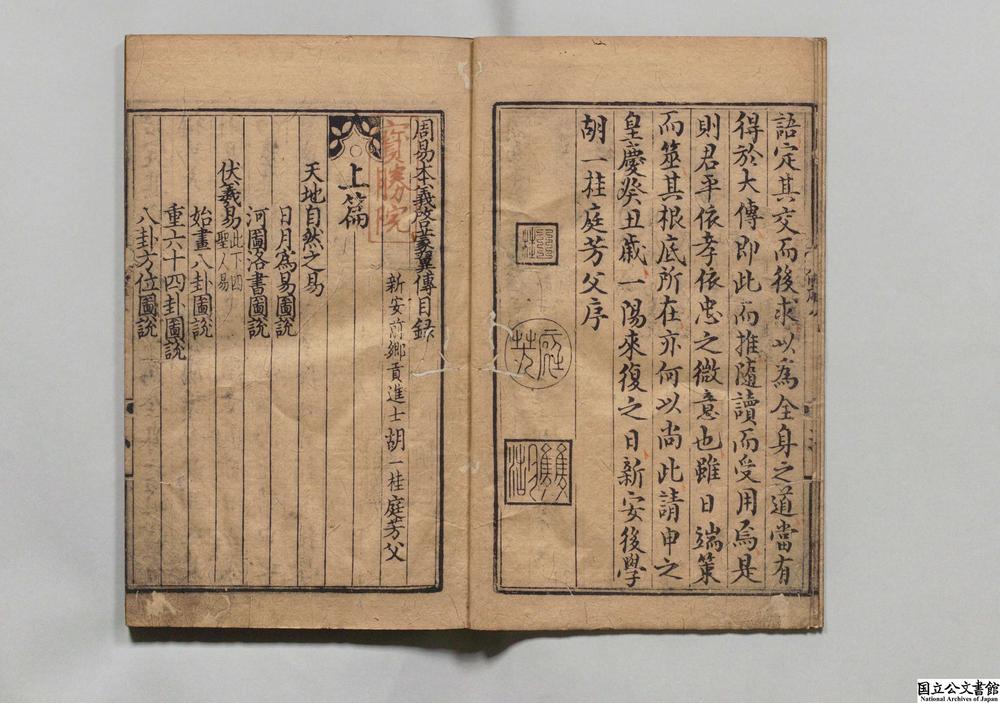 語定其交而後求以為全身之道當有
得於大傳即此而推隨讀而受用焉是
則君平依孝依忠之微意也雖日端策
而筮其根底所在亦何以尚此請申之
皇慶癸丑歲一陽來復之日新安後學
胡一桂庭芳父序
庭芳
雙湖
周易本義啓蒙翼傳目録
新安前鄉貢進士胡一桂庭芳父
寳勝院
上篇
天地自然之易
日月為易圖説
河圖洛書圖説
伏羲易此下四聖人易
始畫八卦圖説
重六十四卦圖説
八卦方位圖説
国立公文書館
National Archives of Japan